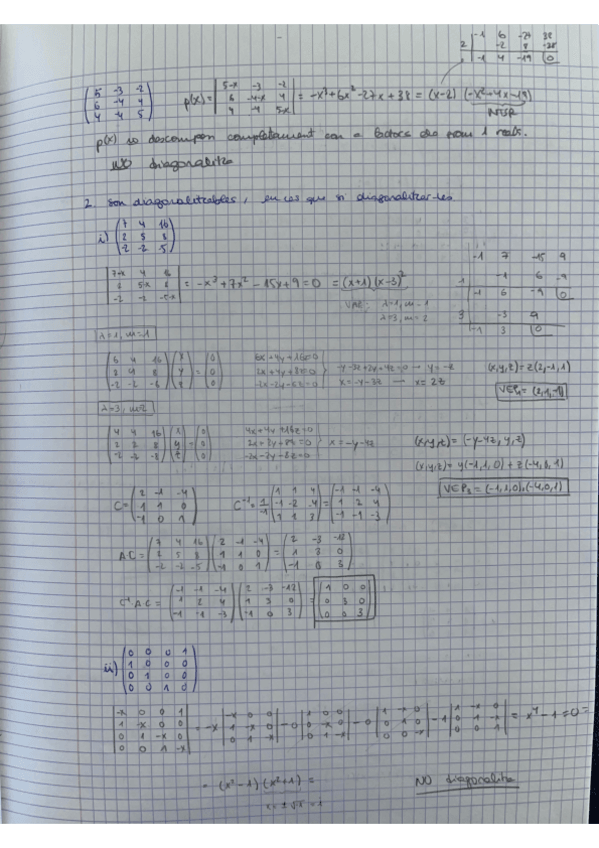 2 | -1 6 -27 38
-2 8 -38
-1 4 -19 0
(5 -3 -2
6 -4 4
4 -4 5)
p(x) = |5-x -3 -2
6 -4-x 4
4 -4 5-x| = -x³+6x²-27x+38 = (x-2) (-x²+4x-19)
p(x) no descompon completament com a factors de grau 1 reals.
NO diagonalitza
2. Son diagonalitzables, en cas que si diagonalitzar-les
i) (7 4 16
2 5 8
-2 -2 -5)
|7-x 4 16
2 5-x 8
-2 -2 -5-x| = -x³+7x²-15x+9=0 = (x-1)(x-3)²
VAP: λ=1, m=1
λ=3, m=2
-1 7 -15 9
1 | -1 6 -9
-1 6 -9 0
3 | -3 9
-1 3 0
λ=1, m=1
(6 4 16
2 4 8
-2 -2 -6) (x
y
z) = (0
0
0)
6x+4y+16z=0
2x+4y+8z=0
-2x-2y-6z=0
x=-y-3z → x=2z
(x,y,z)=z(2,-1,1)
λ=3, m=2
(4 4 16
2 2 8
-2 -2 -8) (x
y
z) = (0
0
0)
4x+4y+16z=0
2x+2y+8z=0
-2x-2y-8z=0
x=-y-4z
(x,y,z)=(-y-4z,y,z)
(x,y,z)=y(-1,1,0)+z(-4,0,1)
VEP₃=(-1,1,0),(-4,0,1)
C = (2 -1 -4
1 1 0
-1 0 1)
A·C = (7 4 16
2 5 8
-2 -2 -5) (2 -1 -4
1 1 0
-1 0 1) = (2 -3 -12
1 3 0
-1 0 3)
C⁻¹AC = (-1 -1 -4
1 2 4
-1 -1 -3) (2 -3 -12
1 3 0
-1 0 3) = (1 0 0
0 3 0
0 0 3)
ii) (0 0 0 1
1 0 0 0
0 1 0 0
0 0 1 0)
|-x 0 0 1
1 -x 0 0
0 1 -x 0
0 0 1 -x| = -x |-x 0 0
1 -x 0
0 1 -x|
= x⁴-1=0=
= (x²-1)(x²+1) =
NO diagonalitza